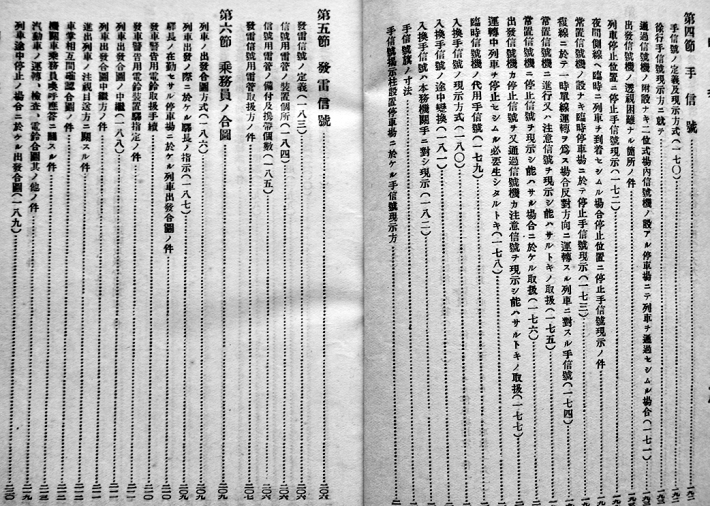 第四節 手信號
手信號ノ定義及現示方式(一七〇)
徐行手信號現示方ニ就テ
通過信號機ノ附設ナキ二位式場內信號機ノ設アル停車場ニテ列車チ通過セシムル場合(一七一)
出發信號機ノ透視困難ナル箇所ノ件
列車停止位置ニ停止手信號現示(一七二)
夜間側線ヘ臨時ニ列車チ到着セシムル場合停止位置ニ停止手信號現示ノ件
常置信號機ノ設ナキ臨時停車場ニ於テ停止手信號現示(一七三)
複線ニ於テ一時單線運轉チ爲ス場合反對方向ニ運轉スル列車ニ對スル手信號(一七四)
常置信號機ニ進行又ハ注意信號チ現示シ能ハサルトキノ取扱(一七五)
常置信號機ニ停止信號チ現示シ能ハサル場合ニ於ケル取扱(一七六)
出發信號機カ停止信號チ又通過信號機カ注意信號チ現示シ能ハサルトキノ取扱(一七七)
運轉中列車チ停止セシムル必要生シタルトキ(一七八)
臨時信號機ノ代用手信號(一七九)
入換手信號ノ現示方式(一八〇)
入換手信號ノ途中變換(一八一)
入換手信號ハ本務機關手ニ對シ現示(一八二)
手信號旗ノ寸法
手信號揭示柱設置停車場ニ於ケル手信號現示方
第五節 發雷信號
發雷信號ノ定義(一八三)
信號用雷管ノ裝置個所(一八四)
信號用雷管ノ備付及携帶個數(一八五)
發雷信號用雷管取扱方ノ件
第六節 乘務員ノ合圖
列車ノ出發合圖方式(一八六)
列車出發ノ際ニ於ケル驛長ノ指示(一八七)
驛長ノ在勤セサル停車場ニ於ケル列車出發合圖ノ件
發車警告用電鈴取扱手續
發車警告用電鈴裝置驛指定ノ件
列車出發合圖ノ中繼(一八八)
列車出發合圖中繼方ノ件
進出列車ノ注視目送方ニ關スル件
車掌相互間確認合圖ノ件
機關車乘務員喚呼應答ニ關スル件
汽動車ノ運轉、檢査、電鈴合圖其ノ他ノ件
列車途中停止ノ場合ニ於ケル出發合圖(一八九)